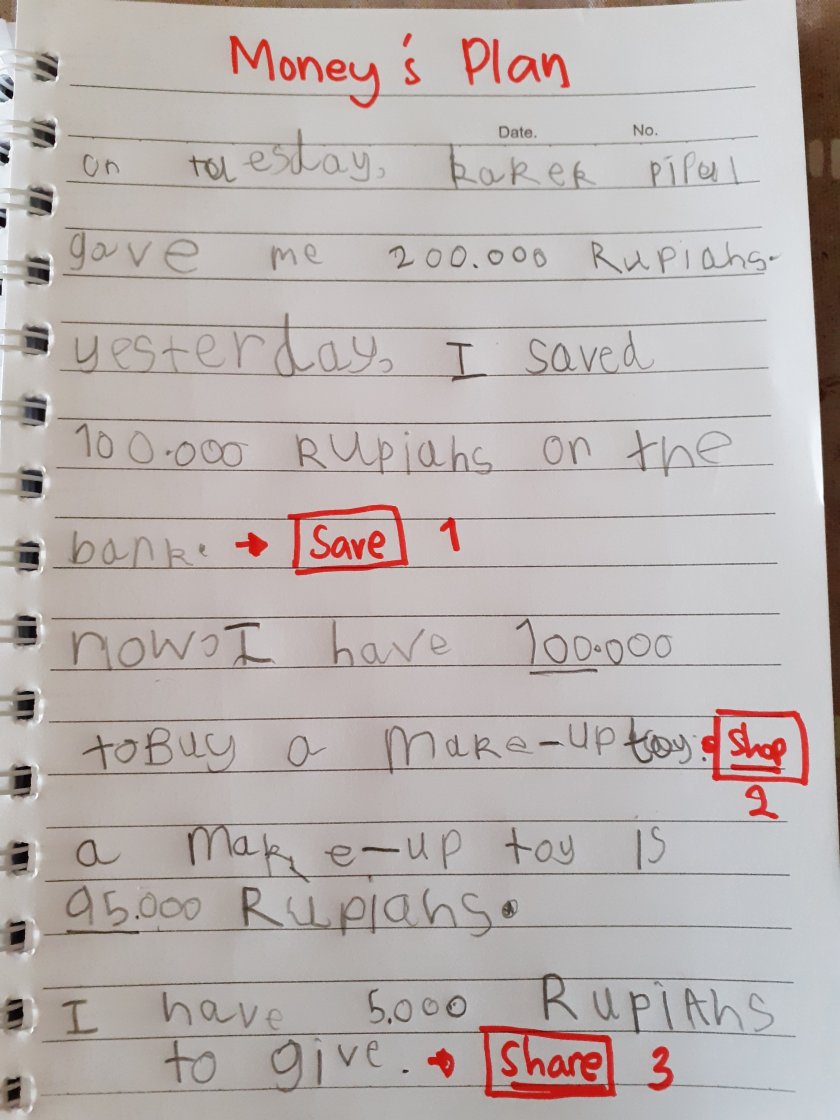 Money's Plan
Date. No.
on tuesday, kakek pipul
gave me 200.000 Rupiahs.
yesterday, I saved
100.000 Rupiahs on the
bank. → Save 1
now, I have 100.000
to Buy a Make-up toy. Shop
2
a Make-up toy is
95.000 Rupiahs.
I have 5.000 RupiAhs
to give. → Share 3